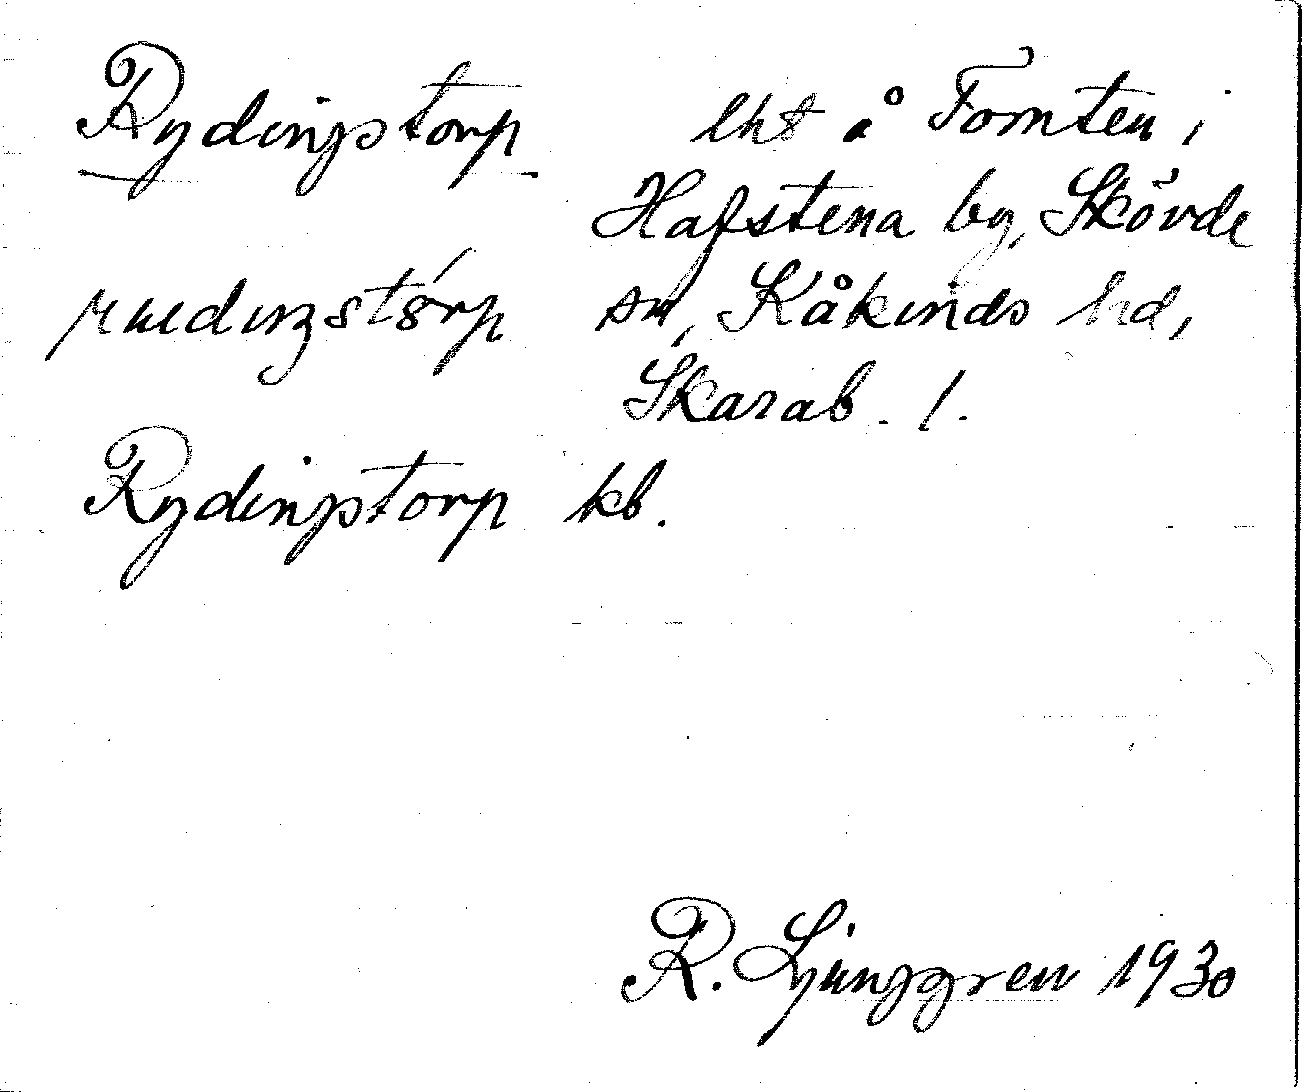 Rydingstorp
lht å Tomten i
Hafstena by, Skövde
sn, Kåkinds hd,
Skarab. l.
Rydingstorp kb.
R. Ljunggren 1930